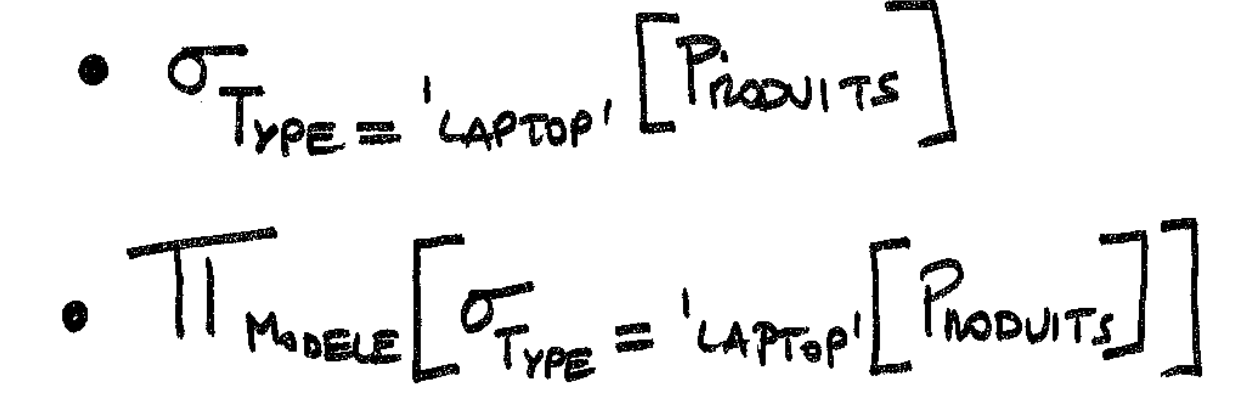 • σ TYPE = 'LAPTOP' [PRODUITS]
• Π MODELE [σ TYPE = 'LAPTOP' [PRODUITS]]